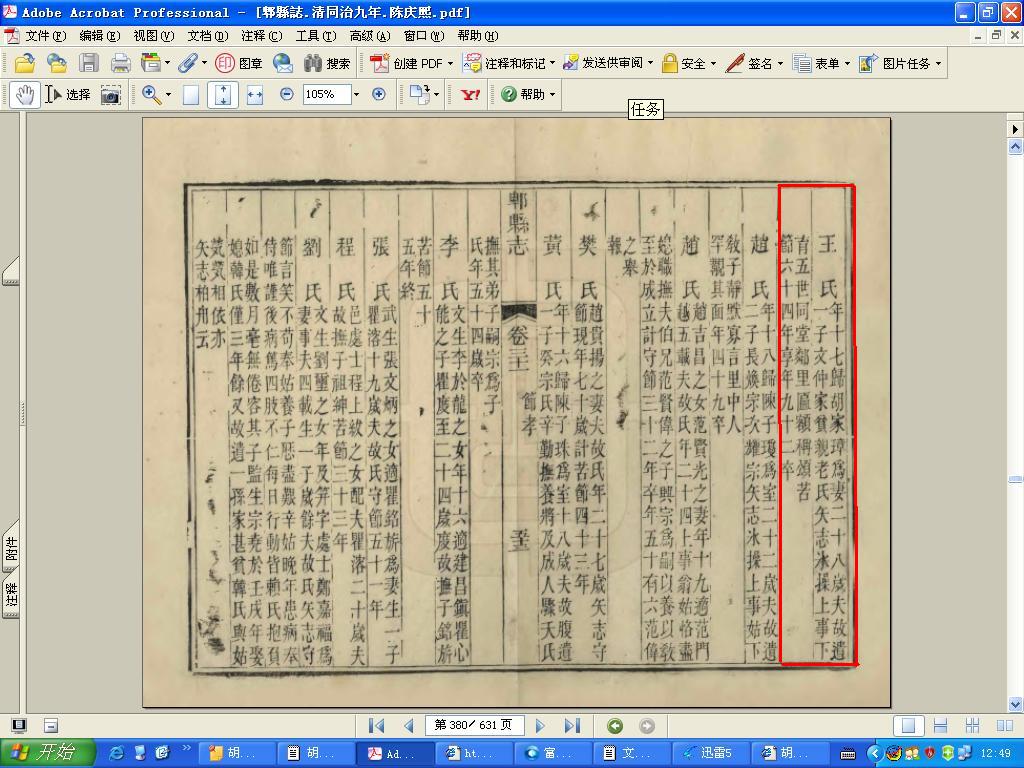 Adobe Acrobat Professional - [郫縣誌.清同治九年.陈庆熙.pdf]
文件(F) 编辑(E) 视图(V) 文档(D) 注释(C) 工具(T) 高级(A) 窗口(W) 帮助(H)
图章 搜索 创建 PDF 注释和标记 发送供审阅 安全 签名 表单 图片任务
选择 105% Y! 帮助
任务
王氏年十七歸胡家璋爲妻二十八歲夫故遺
一子文仲家貧親老氏矢志氷操上事下
育五世同堂鄰里匾額稱頌苦
節六十四年享年九十二卒
趙氏年十八歸陳子瓊爲室二十二歲夫故遺
二子長煥宗次耀宗矢志氷操上事姑下
教子靜默寡言里中人
罕覿其面年四十九卒
趙氏趙吉昌之女范賢光之妻年十九適范門
越五載夫故氏年二十四上事翁姑恪盡
媳職撫夫伯兄范賢偉之子興宗爲嗣以養以教
至於成立計守節三十二年卒年五十有六范偉
之舉
報
樊氏趙貴揚之妻夫故氏年二十七歲矢志守
節現年七十歲計苦節四十三年
黃氏年十六歸陳子珠爲室十八歲夫故腹遺
一子癸宗氏辛勤撫養將及成人驟夭氏
郫縣志
卷三十一
節孝
撫其弟子嗣宗爲子
氏年五十四歲卒
李氏文生李於龍之女年十六適建昌鎮瞿心
能之子瞿慶至二十四歲慶故撫子銘旂
苦節五十
五年終
張氏武生張文炳之女適瞿銘旂爲妻生一子
瞿溶十九歲夫故氏守節五十一年
程氏邑處士程上紋之女配夫瞿溶二十歲夫
故撫子祖紳苦節三十三年
劉氏文生劉璽之女年及笄字處士鄭嘉福爲
妻事夫四載生一子歲餘夫故氏矢志守
節言笑不苟奉始養子歷盡艱辛姑晚年患病奉
侍唯謹後病篤四肢不仁每日行動皆賴氏抱負
如是數月毫無倦容其子監生宗堯於壬戌年娶
媳韓氏僅三年餘又故遺一孫家甚貧韓氏與姑
煢煢相依亦
矢志柏舟云
附件
注释
第 380/ 631 页
开始 胡... 胡... Ad... ht... 富... 文... 迅雷5 胡... 12:49